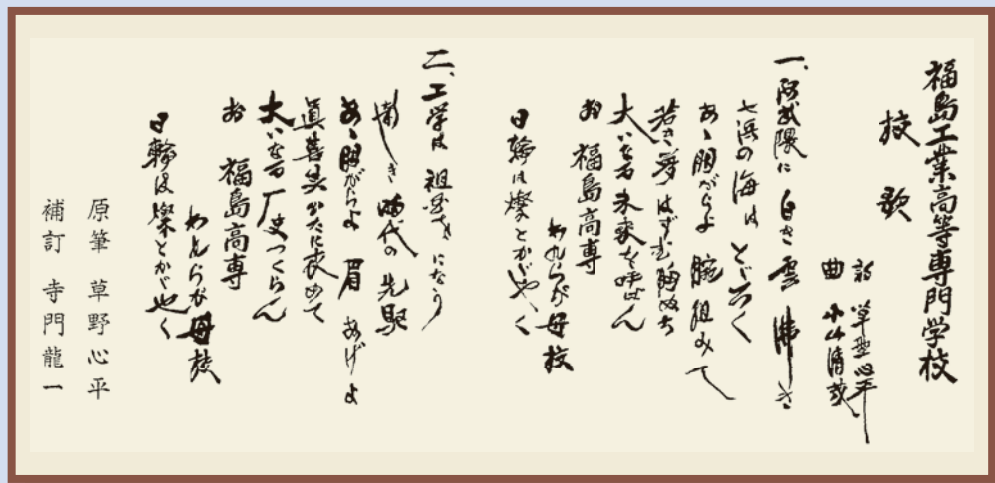 福島工業高等専門学校
校歌
詩 草野心平
曲 小山清茂
一、阿武隈に 白き雲 沸き
七浜の海は とどろく
あゝ朋がらよ 腕組みて
若き夢はずむ胸ぬち
大いなる未来を呼ばん
お 福島高専
われらが母校
日輪は燦とかがやく
二、工学は 祖国を になう
新しき 時代の先駆
あゝ朋がらよ 眉 あげよ
眞善美かたに求めて
大いなる厂史つくらん
お 福島高専
われらが母校
日輪は燦とかがやく
原筆 草野心平
補訂 寺門龍一